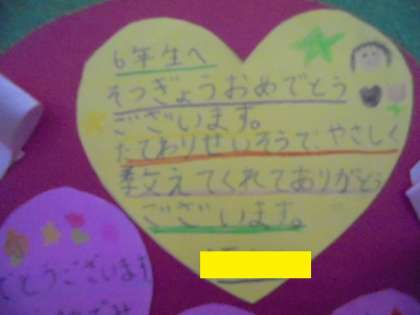 6年生へ
そつぎょうおめでとう
ございます。
たてわりせいそうで、やさしく
教えてくれてありがとう
ございます。
でとうございます